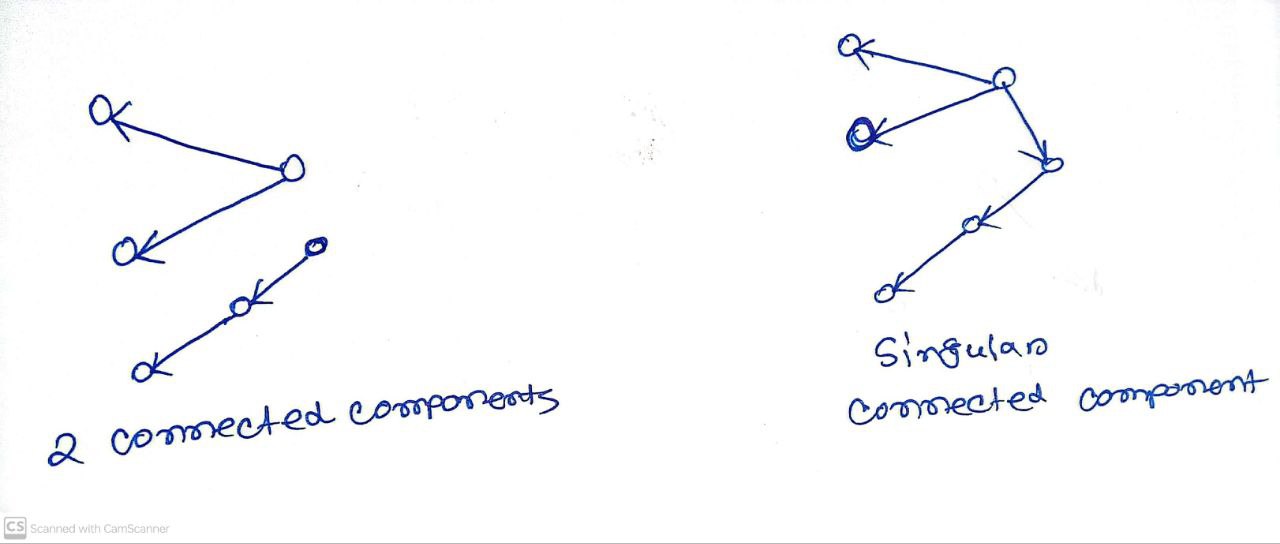 2 connected components
Singular
connected component
CS Scanned with CamScanner